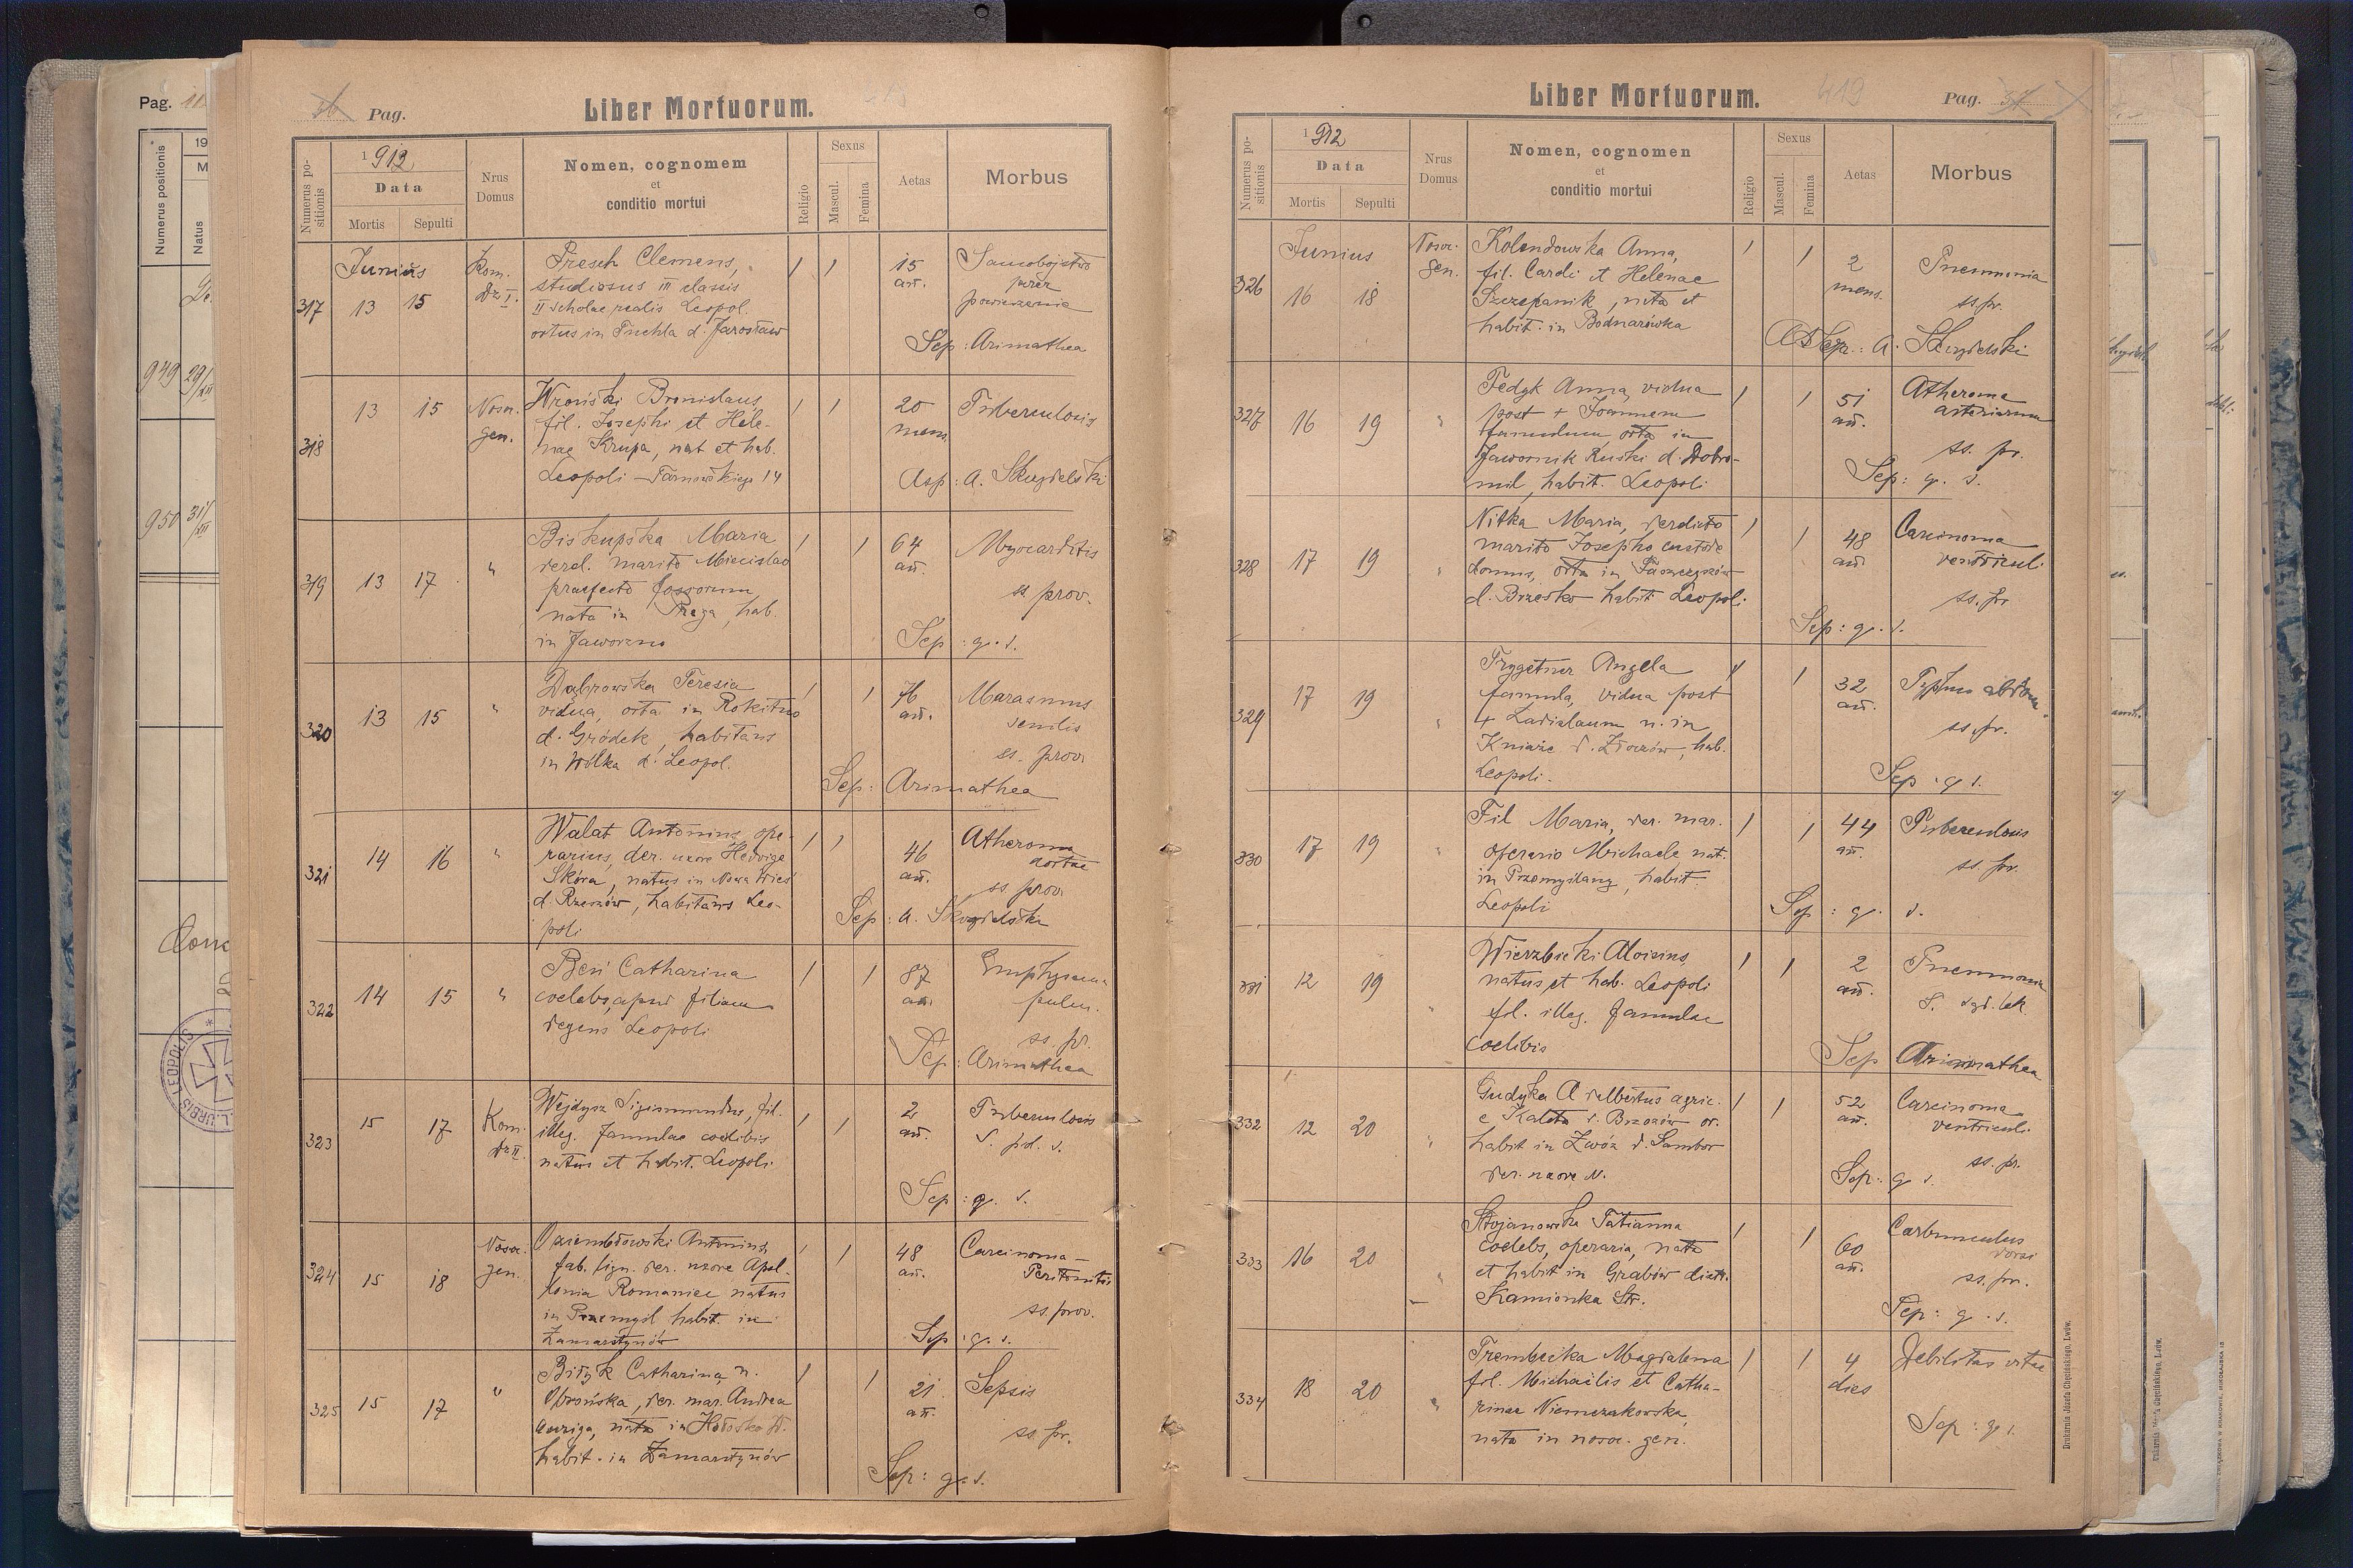 Pag. 11
Numerus positionis
19
M
Natus
949 29/XII
950 31/XII
URBIS LEOPOLIS *
36 Pag.
Liber Mortuorum.
Numerus positionis
1912
Data
Mortis Sepulti
Nrus Domus
Nomen, cognomem
et
conditio mortui
Religio
Sexus
Mascul.
Femina
Aetas
Morbus
Junius
317 13 15 Kom. Dz I.
Presch Clemens,
studiosus III classis
II scholae realis Leopol.
ortus in Tuchla d. Jarosław
1 1 15 an.
Samobójstwo
przez
powieszenie
Sep: Arimathea
318 13 15 Nosoc. gen.
Wroński Bronislaus,
fil. Josephi et Hele-
nae Krupa, nat et hab.
Leopoli – Tarnowskiego 14
1 1 20 mens.
Tuberculosis
Asp: A. Skuzielski
319 13 17 "
Biskupska Maria
derel. marito Miecislao
praefecto fossorum
nata in Praga, hab.
in Jaworzno
1 1 64 an.
Myocarditis
ss prov.
Sep: g. s.
320 13 15 "
Dąbrowska Teresia
vidua, orta in Rokitno
d. Gródek, habitans
in Wólka d. Leopol.
1 1 76 an.
Marasmus
senilis
ss. prov.
Sep: Arimathea
321 14 16 "
Walat Antonius, ope-
rarius, der. uxore Hedvige
Skóra, natus in Nowa Wieś
d. Rzeszów, habitans Leo-
poli
1 1 46 an.
Atheroma
aortae
ss prov.
Sep: A. Skuzielski
322 14 15 "
Beń Catharina
coelebs, apud filiam
degens Leopoli
1 1 87 an.
Emphysema
pulm.
ss. pr.
Sep: Arimathea
323 15 17 Kom. Dz II.
Wejdysz Sigismundus, fil.
illeg. famulae coelibis
natus et habit. Leopoli
1 1 2 an.
Tuberculosis
S. pol. s.
Sep: g. s.
324 15 18 Nosoc. gen.
Oziembłowski Antonius,
fab. lign. der. uxore Apol-
lonia Romaniec natus
in Przemyśl habit. in
Zamarstynów
1 1 48 an.
Carcinoma –
Peritonitis
ss. prov.
Sep: g. s.
325 15 17 "
Bityk Catharina n.
Obrońska, der. mar. Andrea
auriga, nata in Hołosko W.
habit. in Zamarstynów
1 1 21 an.
Sepsis
ss. pr.
Sep: g. s.
Liber Mortuorum.
419
Pag. 37
Numerus positionis
1912
Data
Mortis Sepulti
Nrus Domus
Nomen, cognomen
et
conditio mortui
Religio
Sexus
Mascul.
Femina
Aetas
Morbus
Junius
326 16 18 Nosoc. gen.
Kolendowska Anna,
fil. Caroli et Helenae
Szczepanik, nata et
habit. in Bodnarówka
1 1 2 mens.
Pneumonia
ss. pr.
Sep.: A. Skuzielski
327 16 19 "
Fedyk Anna, vidua
post + Joannem
famulum, orta in
Jawornik Ruski d. Dobro-
mil, habit. Leopoli
1 1 51 an.
Atheroma
arteriarum
ss. pr.
Sep: g. s.
328 17 19 "
Nitka Maria, derelicto
marito Josepho custode
domus, orta in
d. Brzesko habit Leopoli
1 1 48 an.
Carcinoma
ventriculi
ss. pr
Sep: g. s.
329 17 19 "
Frygetner Angela
famula, vidua post
+ Ladislaum n. in
Kniaże d. Złoczów, hab.
Leopoli.
1 1 32 an.
Typhus abdom.
ss. pr.
Sep: g s.
330 17 19 "
Fil Maria, der. mar.
operario Michaele, nat.
in Przemyślany, habit.
Leopoli
1 1 44 an.
Tuberculosis
ss. pr.
Sep: g. s.
331 12 19 "
Wierzbicki Aloisius
natus et hab. Leopoli
fil. illeg. famulae
coelibis
1 1 2 an.
Pneumonia
S. sąd. lek.
Sep Arimathea
332 12 20 "
Gudyka Adalbertus agric.
e Kaleta d. Brzozów or.
habit in Zwóz d. Sambor
der. uxore N.
1 1 52 an.
Carcinoma
ventriculi
ss. pr.
Sep: g s.
333 16 20 "
Stojanowska Tatianna
coelebs, operaria, nata
et habit in Grabów distr.
Kamionka Str.
1 1 60 an.
Carbunculus
dorsi
ss. pr.
Sep: g. s.
334 18 20 "
Trembicka Magdalena
fil. Michaelis et Catha-
rinae Niemczakowska,
nata in nosoc. gen.
1 1 4 dies
Debilitas vitae
Sep: g. s.
Drukarnia Józefa Chęcińskiego, Lwów.